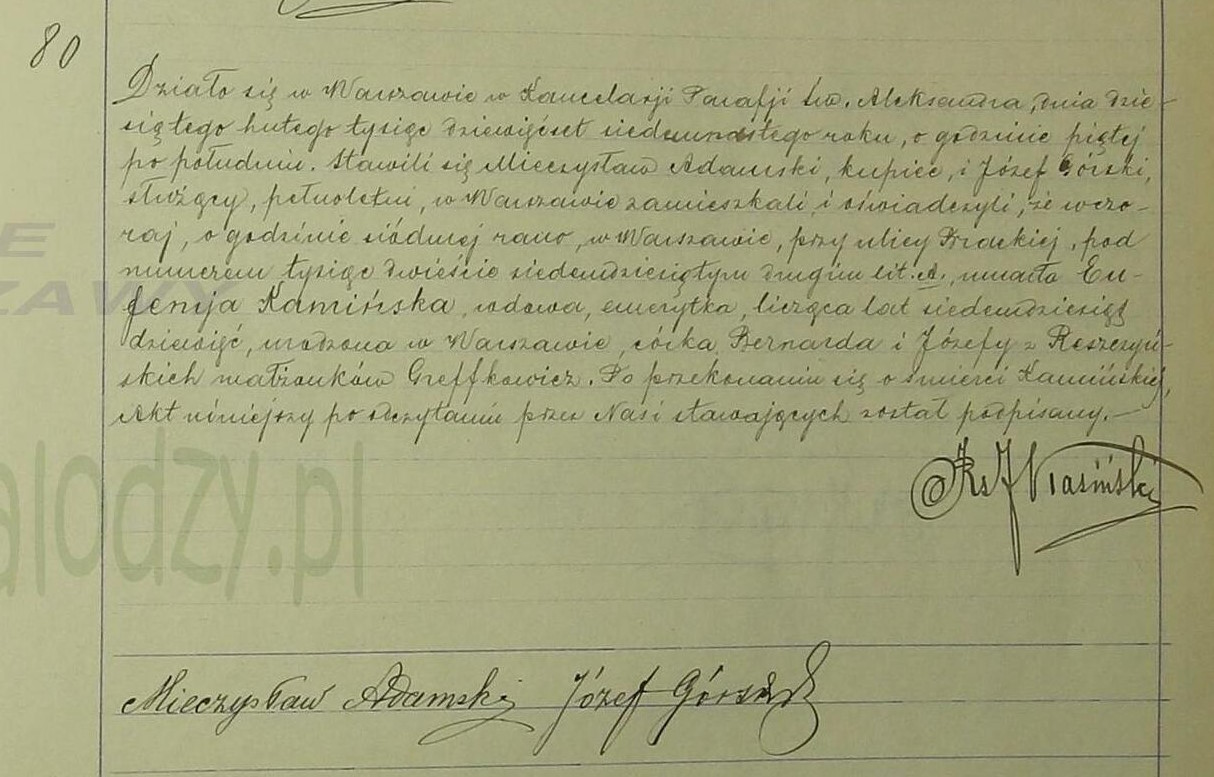 80
Działo się w Warszawie w Kancelarji Parafji św. Aleksandra, dnia dzie-
siątego lutego tysiąc dziewięćset siedemnastego roku, o godzinie piątej
po południu. Stawili się Mieczysław Adamski, kupiec, i Józef Górski,
służący, pełnoletni, w Warszawie zamieszkali, i oświadczyli, że wczo-
raj, o godzinie siódmej rano, w Warszawie, przy ulicy Brackiej, pod
numerem tysiąc dwieście siedemdziesiątym drugim lit. A., umarła Eu-
femja Kamińska, wdowa, emerytka, licząca lat siedemdziesiąt
dziewięć, urodzona w Warszawie, córka Bernarda i Józefy z Reszczyń-
skich małżonków Greffkowicz. Po przekonaniu się o śmierci Kamińskiej,
Akt niniejszy po odczytaniu przez Nas i stawających został podpisany.—
Ks J
Mieczysław Adamski Józef Górski
E
ZAWY
alodzy.pl